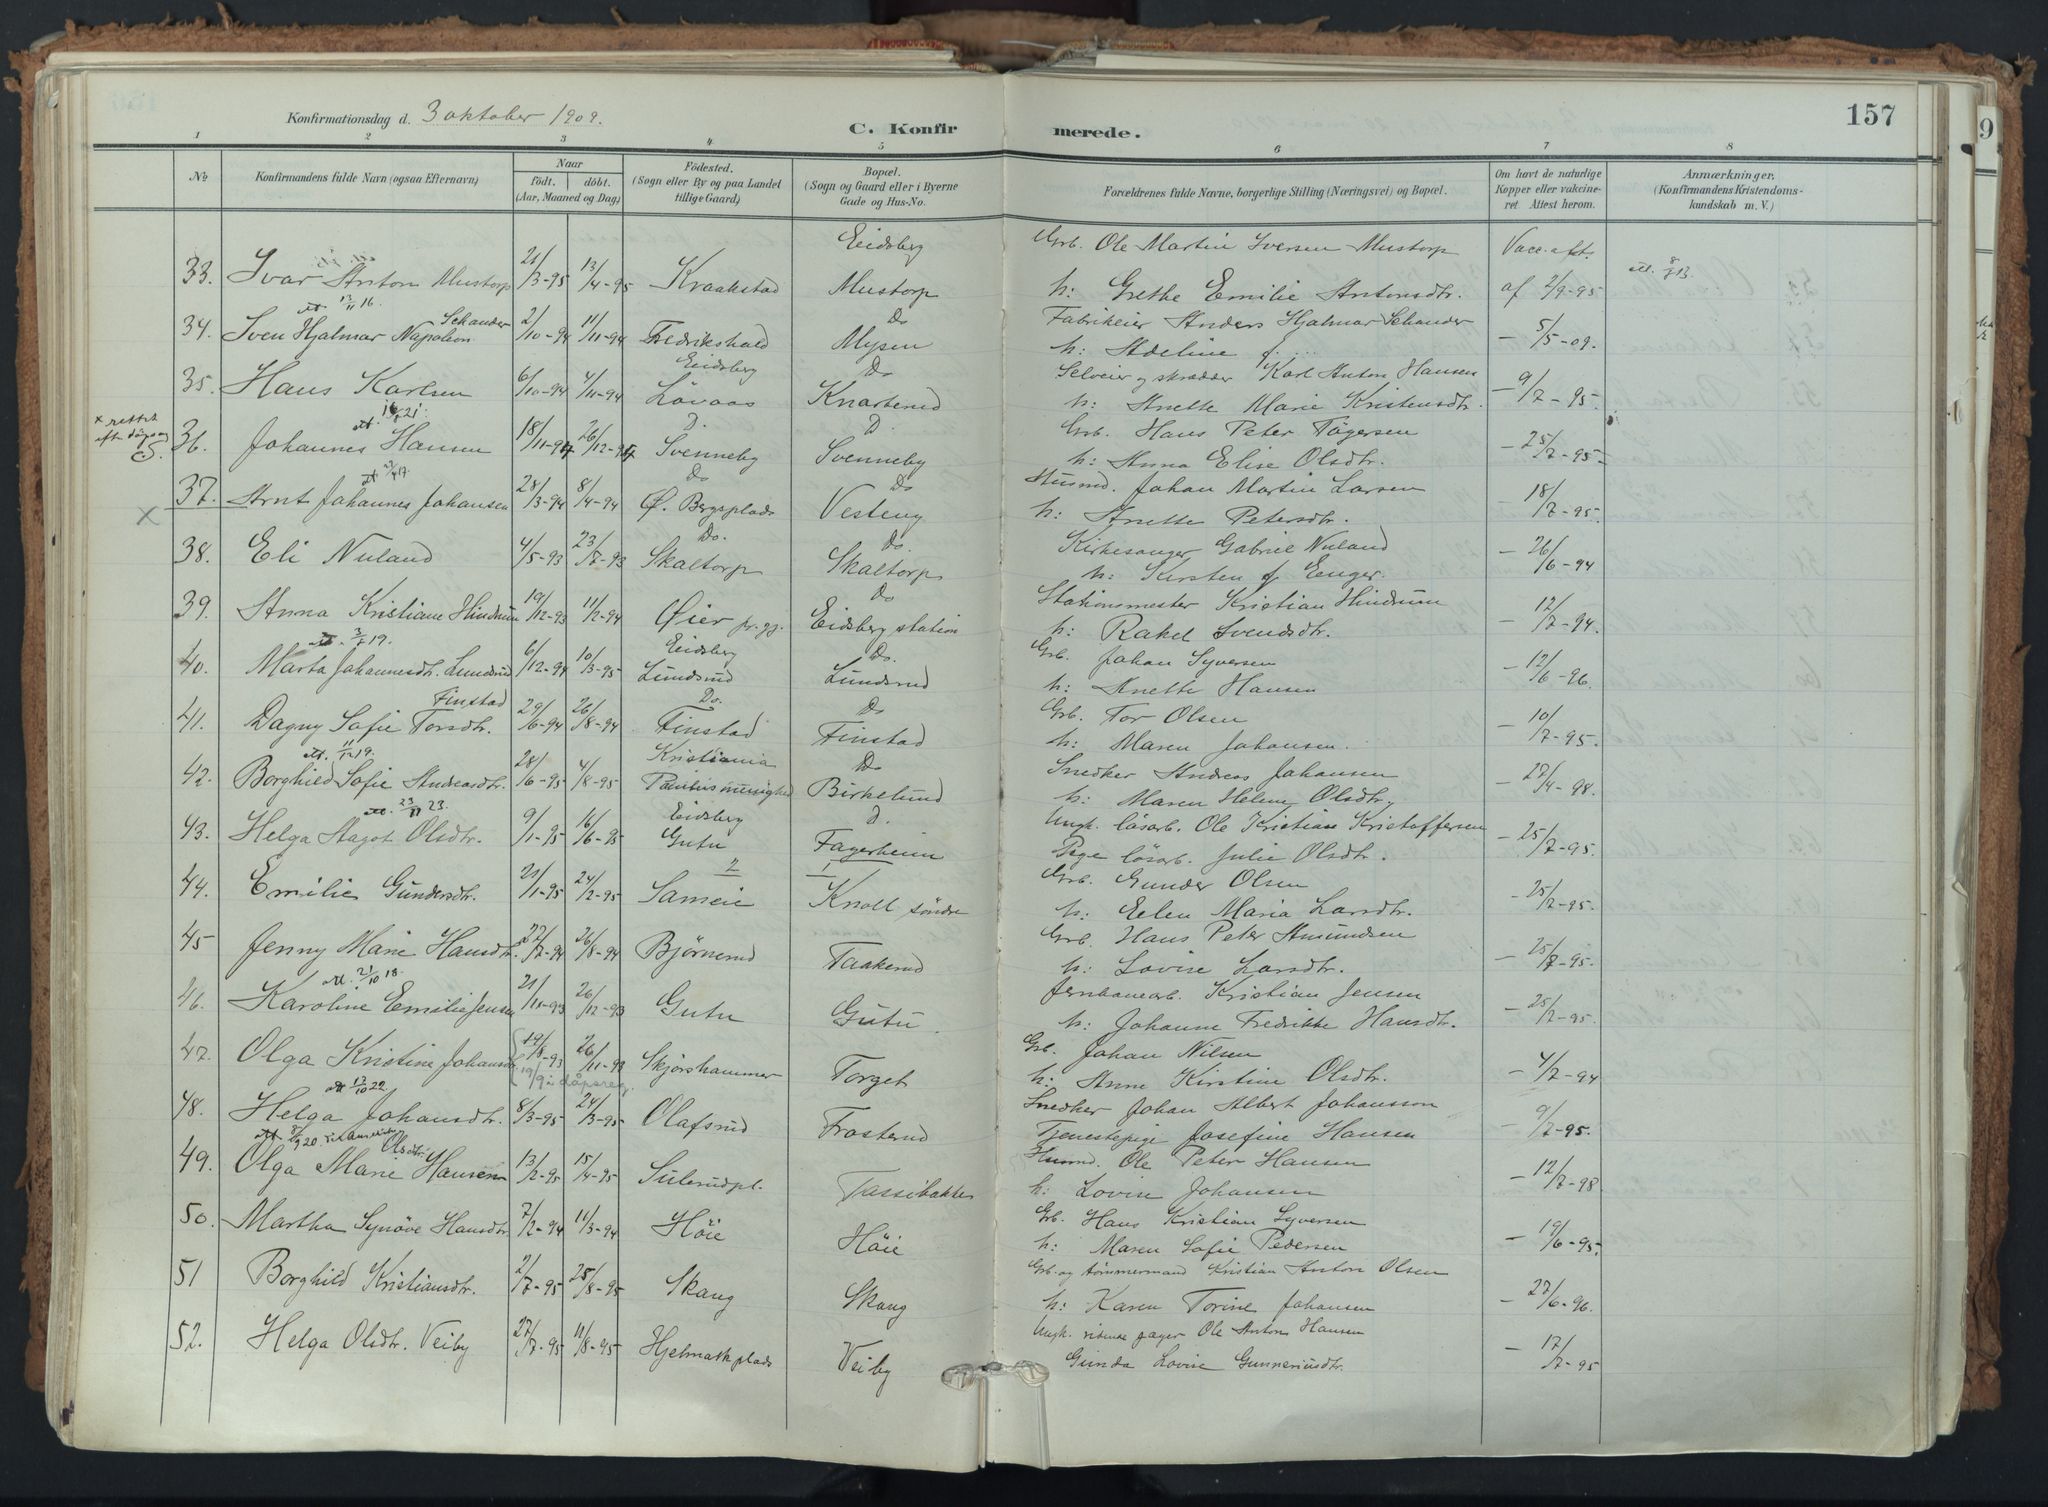 157
Konfirmationsdag d. 3 oktober 1909.
C. Konfirmerede.
1 2 3 4 5 6 7 8
No Konfirmandens fulde Navn (ogsaa Efternavn) Naar født. døbt. (Aar, Maaned og Dag) Födested. (Sogn eller By og paa Landet tillige Gaard) Bopæl. (Sogn og Gaard eller i Byerne Gade og Hus-No. Forældrenes fulde Navne, borgerlige Stilling (Næringsvei) og Bopæl. Om havt de naturlige Kopper eller vakcineret Attest herom. Anmærkninger. (Konfirmandens Kristendomskundskab m. V.)
Eidsberg Grb. Ole Martin Iversen Mustorp Vacc. att.
33. Ivar Anton Mustorp 21/3-95 13/4-95 Kraakstad Mustorp h: Grethe Emilie Antonsdtr. af 2/9-95 att. 8/1 13.
att. 13/11 16
Schander Do Fabrikeier Anders Hjalmar Schander
34. Sven Hjalmar Napoleon 2/10-94 11/11-94 Fredrikshald Mysen h: Adeline f. .... - 5/5-09.
Eidsberg Do Selveier og skrædder Karl Anton Hansen
35. Hans Karlsen 6/10-94 4/11-94 Lövaas Knarterud h: Anette Marie Kristensdtr. - 9/7-95.
x rettet eft. dåpsreg
D. D. Grb. Hans Peter Tögersen
36. Johannes Hansen 18/11-94 26/12-94 Svenneby Svenneby h: Anna Elise Olsdtr. - 25/7-95.
Do Do Husmd. Johan Martin Larsen
37. Arnt Johannes Johansen 28/3-94 8/4-94 Ø. Bergsplads Vesteng h: Anette Petersdtr. - 18/7-95.
x
Do. Do. Kirkesanger Gabriel Nuland
38. Eli Nuland 4/5-93 23/7-93 Skaltorp Skaltorp h: Kirsten f. Enger. - 26/6-94
Do Stationsmester Kristian Hindrum
39. Anna Kristiane Hindrum 19/12-93 11/2-94 Øier pr. gj. Eidsberg station h: Rakel Svendsdtr. - 12/7-94.
Eidsberg Do. Grb. Johan Syversen
40. Marta Johannesdtr. Lundsrud 6/12-94 10/3-95 Lundsrud Lundsrud h: Anette Hansen - 12/6-96.
Finstad Do. Do Grb. Tor Olsen
41. Dagny Sofie Torsdtr. 29/6-94 26/8-94 Finstad Finstad h: Maren Johansen. - 10/7-95.
att. 11/12 19. Kristiania Do Snedker Andreas Johansen
42. Borghild Sofie Andreasdtr. 28/6-95 4/8-95 Birkelund h: Maren Helene Olsdtr. - 27/4-98.
att. 23/11 23. Eidsberg D. Ungk. løsarb. Ole Kristian Kristoffersen
43. Helga Hagot Olsdtr. 9/1-95 16/6-95 Gutu Fagerheim Pige løsarb. Julie Olsdtr. - 25/7-95.
Grb. Gunder Olsen
44. Emilie Gundersdtr. 21/1-95 24/2-95 Sameie Knoll söndre h: Eelen Maria Larsdtr. - 25/7-95.
Grb. Hans Peter Amundsen
45 Jenny Marie Hansdtr. 22/7-94 26/8-94 Björnerud Taakerud h: Lovise Larsdtr. - 25/7-95.
att. 21/10 18. Jernbanearb. Kristian Jensen
46. Karoline Emilie Jensen 21/11-93 26/12-93 Gutu Gutu. h: Johanne Fredrikke Hansdtr. - 25/7-95.
Grb. Johan Nilsen
47. Olga Kristine Johansdtr. 19/8-93 26/11-93 Skjörshammer Torget h: Anne Kirstine Olsdtr. - 4/7-94
19/9 i dåpsreg.
att 17/10 22. Snedker Johan Albert Johansson
48. Helga Johansdtr. 8/3-95 24/3-95 Olafsrud Frosterud Tjenestepige Josefine Hansen - 9/7-95.
Olsdtr. Husmd. Ole Peter Hansen
49. Olga Marie Hansen 13/2-95 15/4-95 Sulerudpl. Tassebakken h: Lovise Johansen - 12/7-98.
Grb. Hans Kristian Syversen
50. Martha Synöve Hansdtr. 7/2-94 11/3-94 Höie Höie h: Maren Sofie Pedersen - 19/6-95.
Grb. og tömmermand Kristian Anton Olsen
51 Borghild Kristiansdtr. 2/7-95 25/8-95 Skaug Skaug h: Karen Torine Johansen - 27/6-96.
Ungk. Ole Anton Hansen
52. Helga Olsdtr. Veiby 27/7-95 11/8-95 Hjelmark plads Veiby Gunda Lovise Gunneriusdtr. - 17/7-95